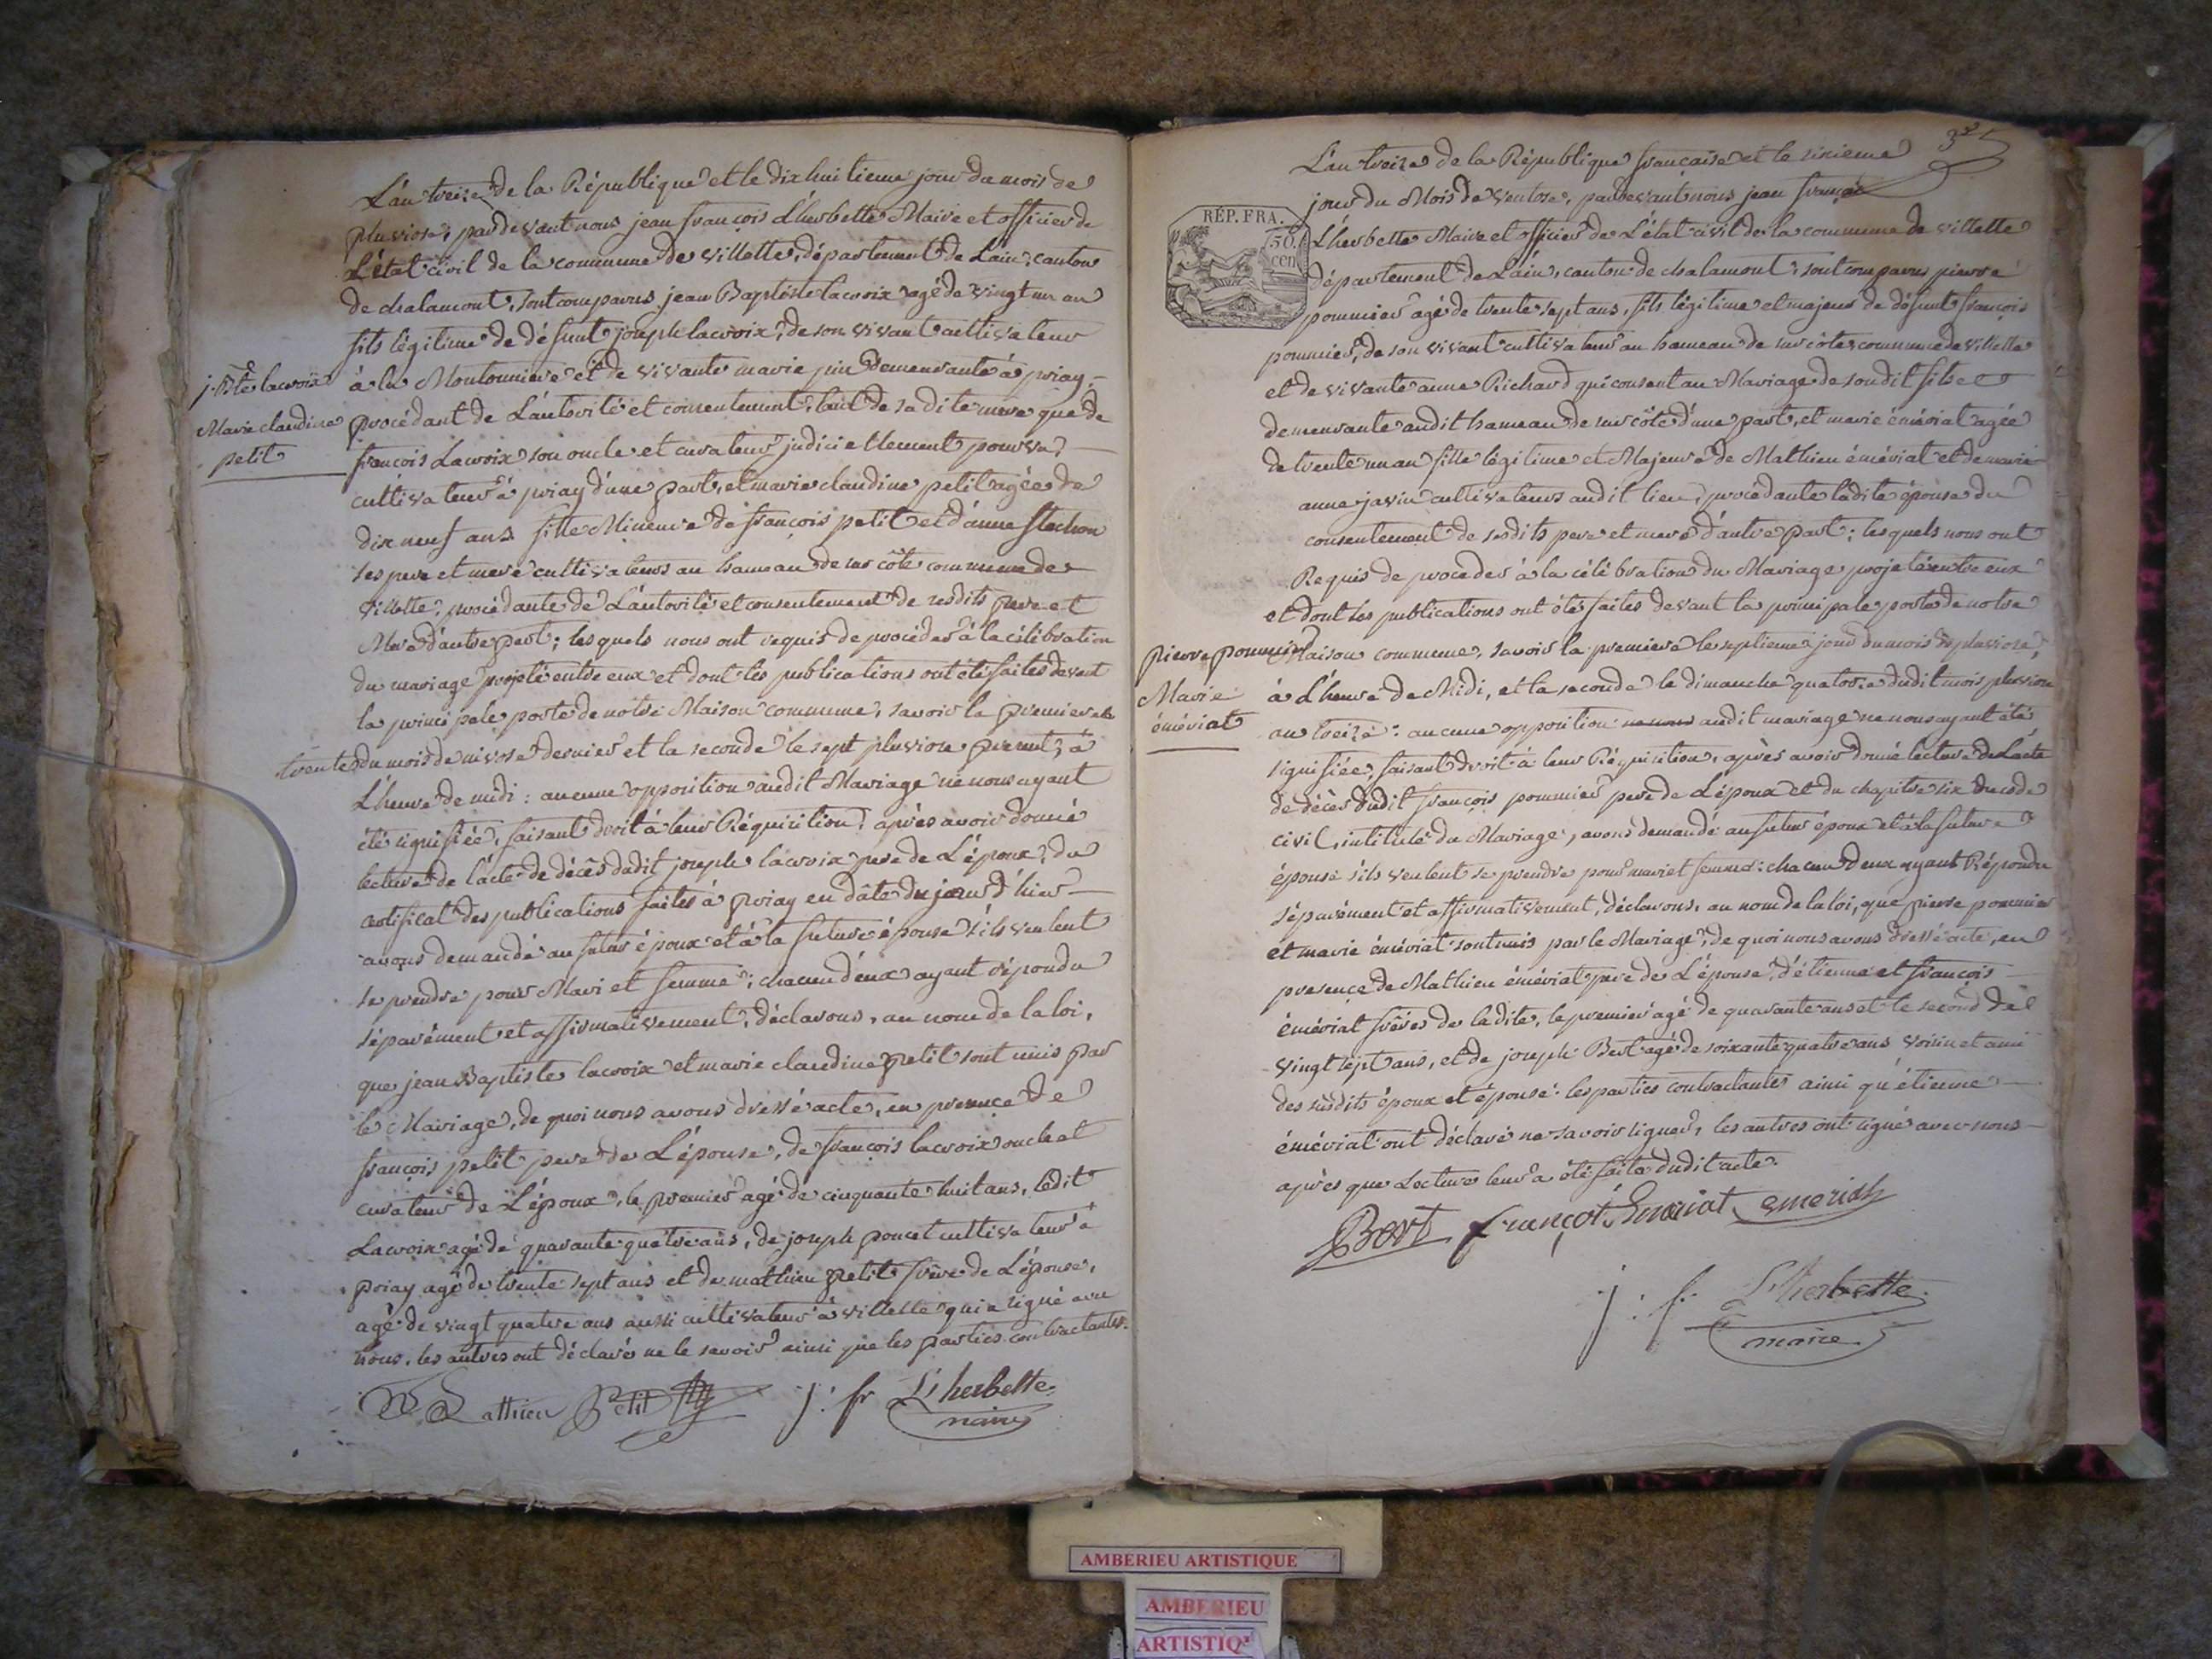 L'an treize de la République et le dix huitieme jour du mois de
pluviose, pardevant nous jean françois L'herbette Maire et officier de
L'état civil de la commune de villette, département de Lain, canton
de chalamont, sont comparus jean Baptiste lacroix agé de vingt un an
fils légitime de défunt joseph lacroix, de son vivant cultivateur
à la Montonniere et de vivante marie pin demeurante à priay,
procédant de L'autorité et consentement, tant de sa dite mere que de
françois Lacroix son oncle et curateur judiciellement pourvu,
cultivateur à priay d'une part, et marie claudine petit agée de
dix neuf ans fille Mineure de françois petit et d'anne flachon
ses pere et mere cultivateurs au hameau de sur côte commune de
villette, procédante de L'autorité et consentement de sesdits pere et
Mere d'autre part; lesquels nous ont requis de procéder à la célébration
du mariage projeté entre eux et dont les publications ont été faites devant
la principale porte de notre Maison commune, savoir la premiere le
trente du mois de nivose dernier et la seconde le sept pluviose present, à
L'heure de midi: aucune opposition audit Mariage ne nous ayant
été signifiée, faisant droit à leur Réquisition, après avoir donné
lecture de l'acte de décès dudit joseph lacroix pere de L'époux, du
certificat des publications faites à priay en dâte du jour d'hier
avons demandé au futur époux et à la future épouse s'ils veulent
se prendre pour Mari et femme: chacun d'eux ayant répondu
séparément et affirmativement, déclarons, au nom de la loi,
que jean Baptiste lacroix et marie claudine petit sont unis par
le Mariage, de quoi nous avons dressé acte, en presence de
françois petit pere de L'épouse, de françois lacroix oncle et
curateur de L'époux, le premier agé de cinquante huit ans, ledit
Lacroix agé de quarante quatre ans, de joseph poncet cultivateur à
priay agé de trente sept ans et de mathieu petit frère de L'épouse,
agé de vingt quatre ans aussi cultivateur à villette qui a signé avec
nous, les autres ont déclaré ne le savoir ainsi que les parties contractantes.
Mathieu Petit j: fr L'herbette
maire
j. Bte lacroix
Marie claudine
petit
3
L'an treize de la République française et le sixieme
jour du Mois de ventose, pardevant nous jean françois
RÉP. FRA.
50
cen
L'herbette Maire et officier de L'état civil de la commune de villette
département de Lain, canton de chalamont, sont comparus pierre
pommier agé de trente sept ans, fils légitime et majeur de défunt françois
pommier, de son vivant cultivateur au hameau de sur côte commune de villette
et de vivante anne Richard qui consent au Mariage de sondit fils et
demeurante audit hameau de sur côte d'une part, et marie émériat agée
de trente un an fille légitime et Majeure de Mathieu émériat et de marie
anne javin cultivateurs audit lieu, procédante ladite épouse du
consentement de sesdits pere et mere d'autre part; lesquels nous ont
Requis de proceder à la célébration du Mariage projeté entre eux
et dont les publications ont été faites devant la principale porte de notre
Maison commune, savoir la premiere le septieme jour du mois de pluviose,
à L'heure de Midi, et la seconde le dimanche quatorze dudit mois pluviose
an treize: aucune opposition audit mariage ne nous ayant été
signifiée, faisant droit à leur Réquisition, après avoir donné lecture de L'acte
de décès dudit françois pommier pere de L'époux et du chapitre six du code
civil, intitulé du Mariage, avons demandé au futur époux et à la future
épouse s'ils veulent se prendre pour mari et femme: chacun d'eux ayant Répondu
séparément et affirmativement, déclarons, au nom de la loi, que pierre pommier
et marie émériat sont unis par le Mariage, de quoi nous avons dressé acte, en
presence de Mathieu émériat pere de L'épouse, d'étienne et françois
émériat frères de ladite, le premier agé de quarante ans et le second de
vingt sept ans, et de joseph Bert agé de soixante quatre ans voisin et ami
des susdits époux et épouse: les parties contractantes ainsi qu'étienne
émériat ont déclaré ne savoir signer, les autres ont signé avec nous
après que Lecture leur a été faite dudit acte.
Bert françoi Emeriat emeriat
j: f: L'herbette
maire
pierre pommier
Marie
émériat
AMBERIEU ARTISTIQUE
AMBERIEU
ARTISTIQ